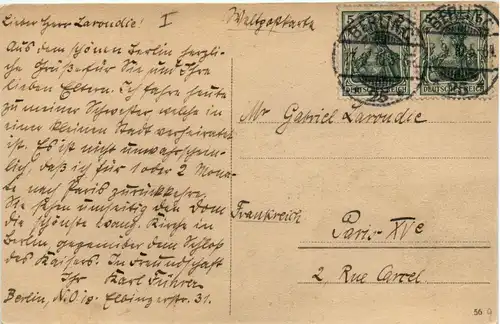 Lieber Herr Lavondie! I
Weltpostkarte
Aus dem schönen Berlin herzli-
che Grüße für Sie und Ihre
lieben Eltern. Ich fahre heute
zu meiner Schwester welche in
einer kleinen Stadt verheiratet
ist. Es ist nicht unwahrschein-
lich, daß ich für 1 oder 2 Mona-
te nach Paris zurückkehre.
Sie sehen umseitig den Dom
die schönste evang. Kirche in
Berlin, gegenüber dem Schloß
des Kaisers. In Freundschaft
Ihr Karl Führer
Berlin, N.O 18. Elbingerstr. 31.
BERLIN
BERLIN
DEUTSCHES REICH
DEUTSCHES REICH
Mr Gabriel Lavondie
Frankreich
Paris XVe
2, Rue Carcel.
56